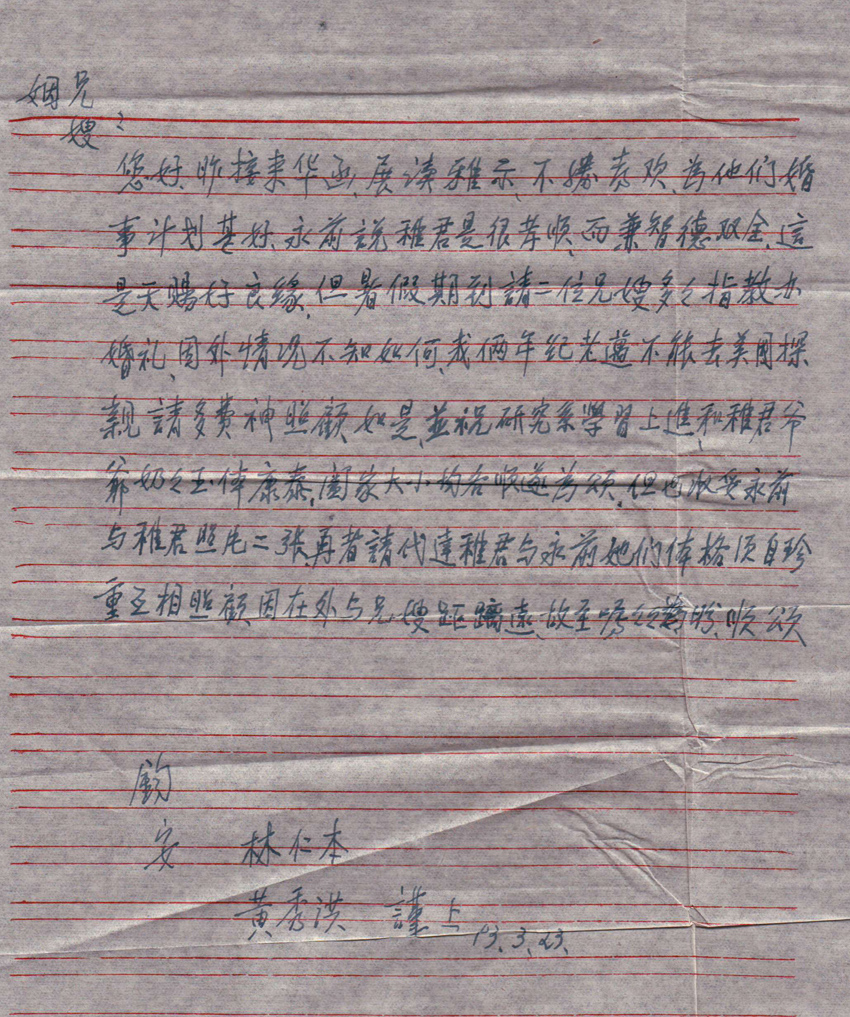 姻兄
嫂：
您好、昨接来华函、展读雅示、不勝喜欢、為他们婚
事计划甚好、永前説稚君是很孝顺、而兼智德双全、這
是天賜好良緣、但暑假期到請二位兄嫂多々指教办
婚礼、国外情况不知如何、我俩年纪老邁不能去美国探
親請多費神照顧如是、並祝研究系學習上進、和稚君爷
爺奶々玉体康泰、闔家大小均各順遂為頌、但也收受永前
与稚君照片二張、再者請代達稚君与永前她们体格须自珍
重互相照顧、因在外与兄嫂距離遠、故至嘱 盼、順頌
鈞
安 林仁本
黄秀洪 謹上
93、3、23、